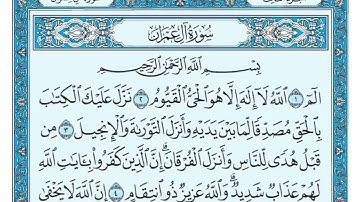 سُورَةُ آلِ عِمْرَانَ
بِسْمِ اللَّهِ الرَّحْمَٰنِ الرَّحِيمِ
الٓمٓ ١ ٱللَّهُ لَآ إِلَٰهَ إِلَّا هُوَ ٱلْحَىُّ ٱلْقَيُّومُ ٢ نَزَّلَ عَلَيْكَ ٱلْكِتَٰبَ
بِٱلْحَقِّ مُصَدِّقًا لِّمَا بَيْنَ يَدَيْهِ وَأَنزَلَ ٱلتَّوْرَىٰةَ وَٱلْإِنجِيلَ ٣ مِن
قَبْلُ هُدًى لِّلنَّاسِ وَأَنزَلَ ٱلْفُرْقَانَ ۗ إِنَّ ٱلَّذِينَ كَفَرُوا۟ بِـَٔايَٰتِ ٱللَّهِ
لَهُمْ عَذَابٌ شَدِيدٌ ۗ وَٱللَّهُ عَزِيزٌ ذُو ٱنتِقَامٍ ٤ إِنَّ ٱللَّهَ لَا يَخْفَىٰ